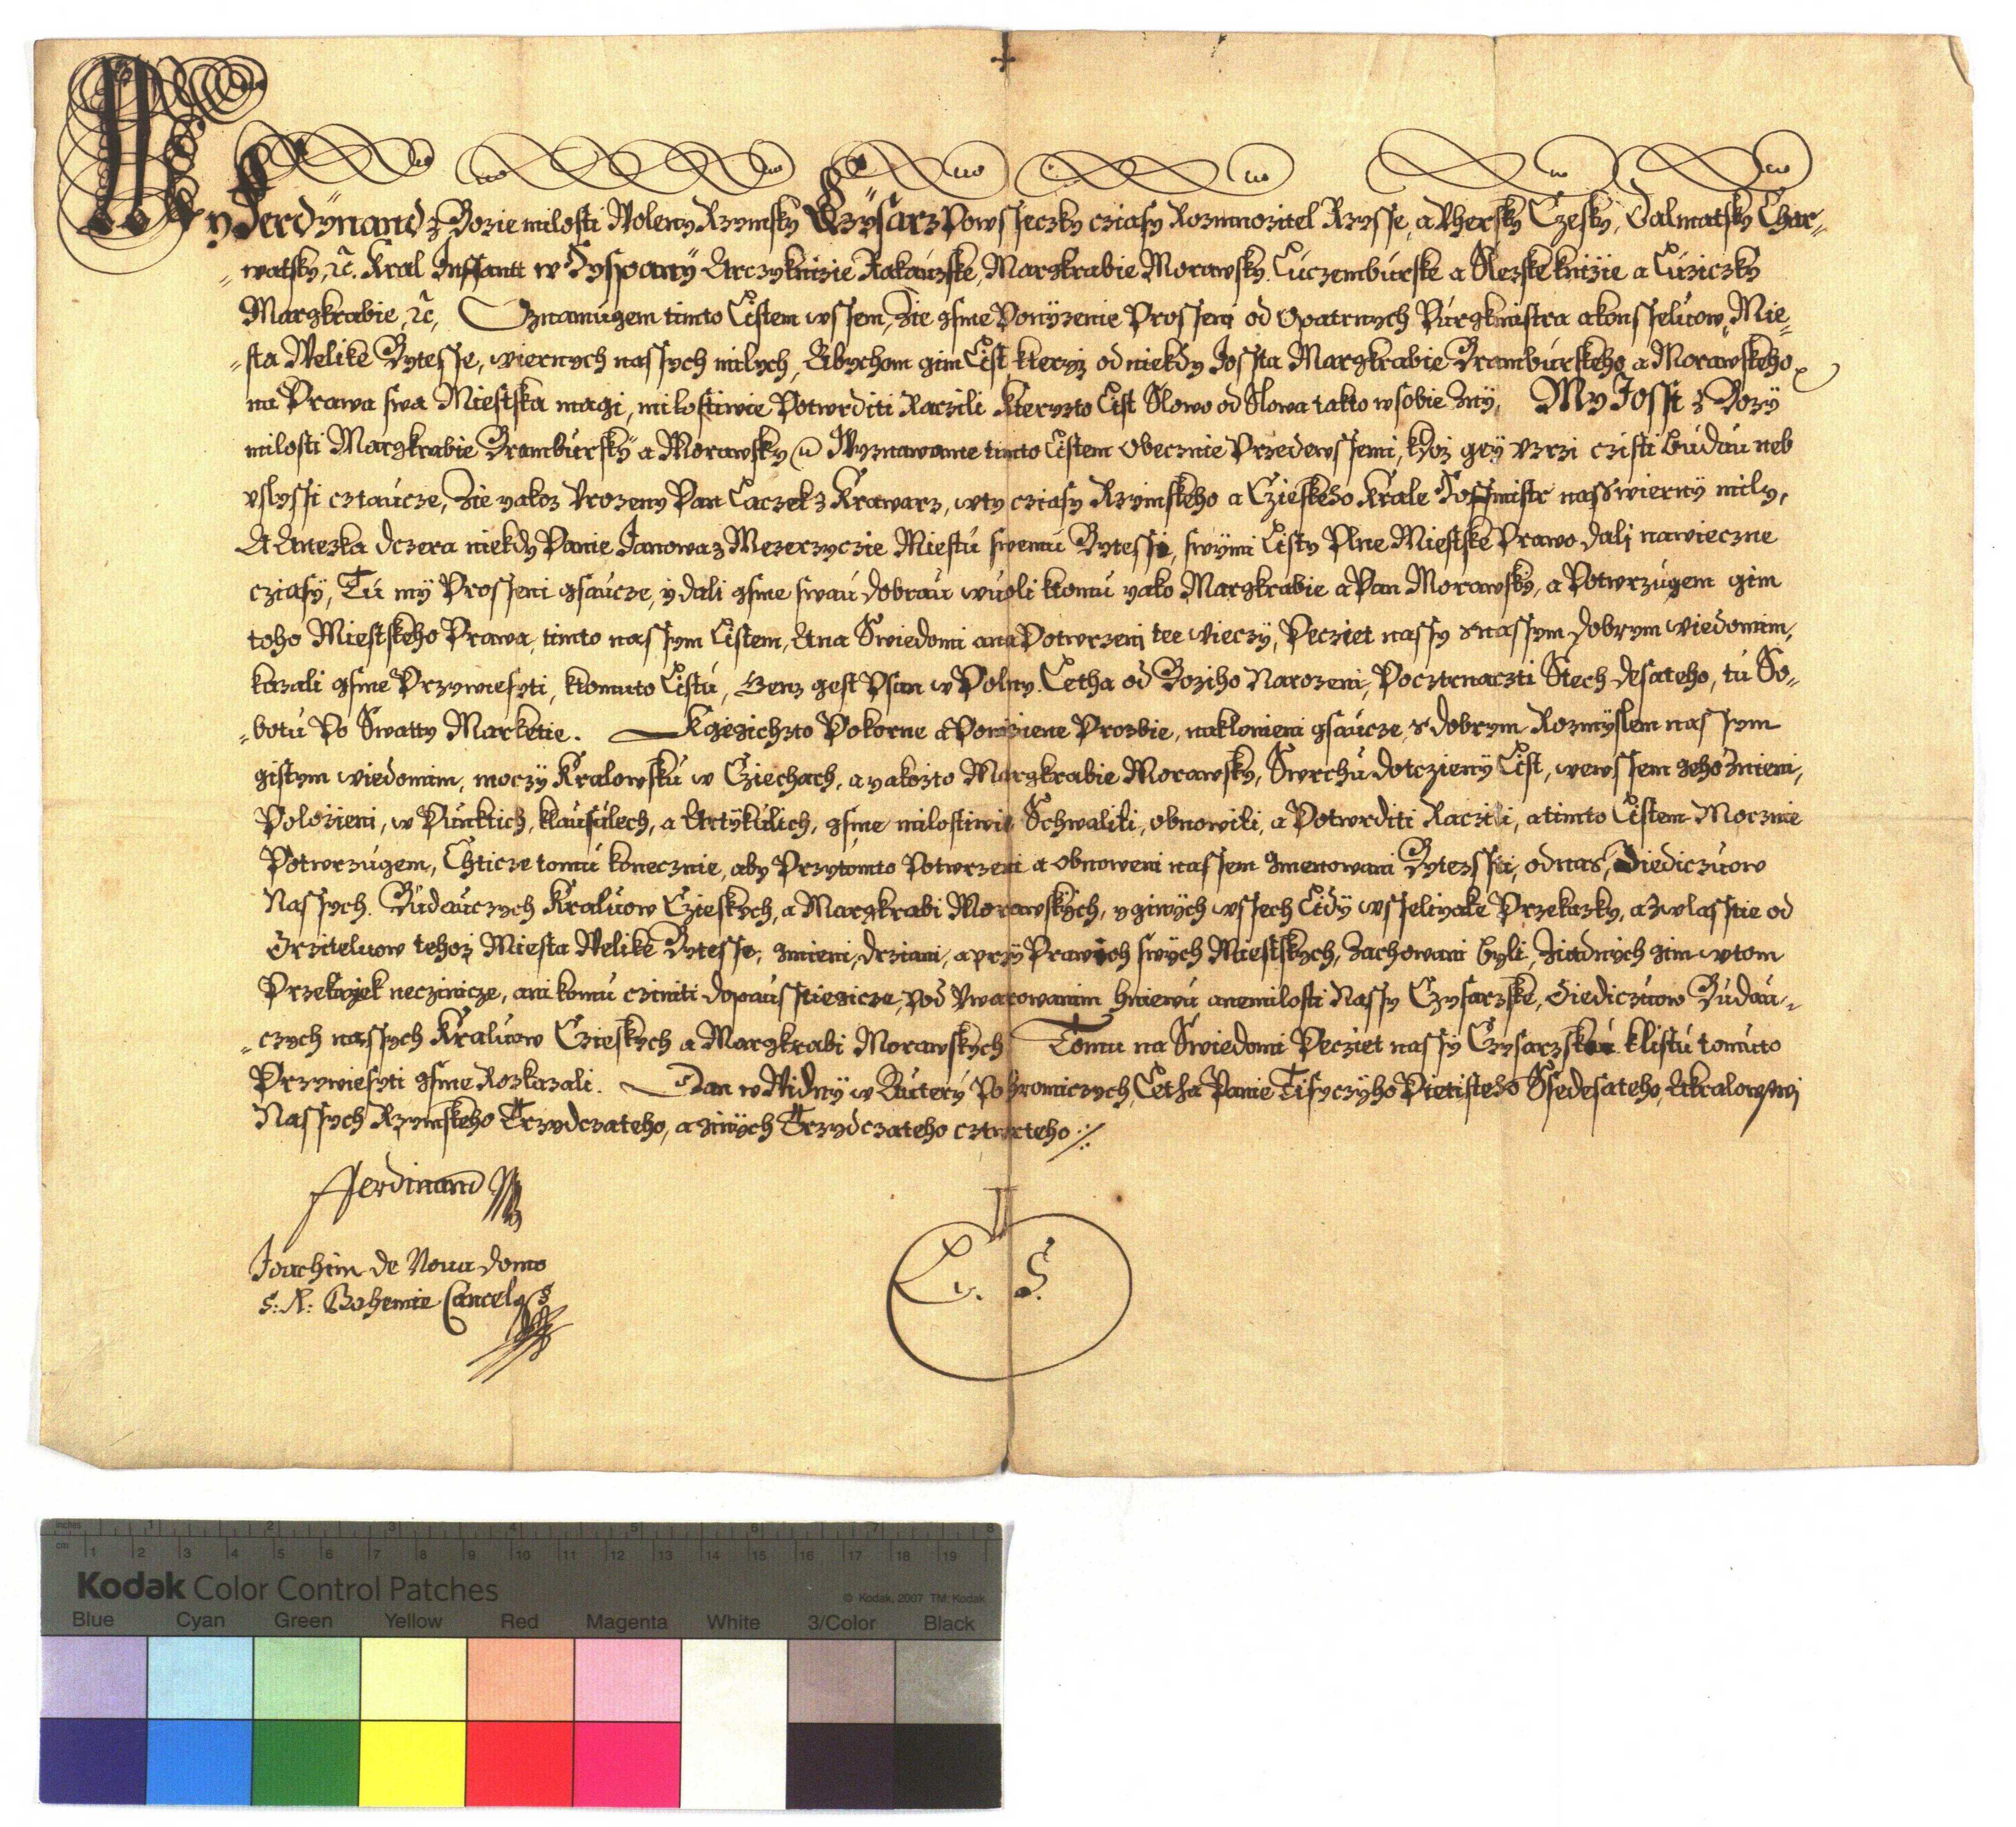 My Ferdynand z Bozie milosti Woleny Rzymsky Czysarz Powsseczky cziasy Rozmnozitel Rzysse, a Vhersky Czesky, Dalmatsky Char„
„watsky, ꝛc. Kral Inffantt w Hyspanÿ Arczyknizie Rakauzske, Margkrabie Morawsky. Luczemburske a Slezske knizie a Luziczky
Margkrabie, ꝛc, Oznamugem timto Listem wssem, Zie gsme Ponÿzenie Prosseni od Opatrnych Purgkmistra a konsseluow, Mie„
„sta Welike Bytesse, wiernych nassych milych, Abychom gim List kteryz od niekdy Jossta Margkrabie Bramburskeho a Morawskeho
na Prawa swa Miestska magi, milostiwie Potwrditi Raczili Kteryzto List Slowo od Slowa takto w sobie Znÿ, My Josst z Bozÿ
milosti Margkrabie Bramburskÿ a Morawsky Wyznawame timto Listem Obecznie Przedewssemi, ktoz geÿ vzrzi czisti budau neb
vslyssi cztaucze, Zie yakoz Vrozeny Pan Laczek z Krawarz, w ty cziasy Rzymskeho a Czieskeho Krale Hoffmistr nass wiernÿ mily,
A Anezka dczera niekdy Panie Janowa z Mezerzyczie Miestu swemu Bytessi, swÿmi Listy Plne Miestske Prawo dali nawieczne
cziasÿ, Tu mÿ Prosseni gsaucze, ÿ dali gsme swau dobrau wuoli ktomu yako Margkrabie a Pan Morawsky, a Potwrzugem gim
toho Miestskeho Prawa, timto nassym Listem, A na Swiedomi a na Potwrzeni tee wieczÿ, Pecziet nassy s nassym dobrym wiedomim,
kazali gsme Przywiesyti, ktomuto Listu, Genz gest Psan w Polny. Letha od Boziho Narozeni, Pocztrnaczti Stech desateho, tu So„
„botu Po Swatty Marketie. K gegichzto Pokorne a Ponizene Prozbie, naklonieni gsaucze, s dobrym Rozmyslem nassym
gistym wiedomim, moczÿ Kralowsku w Cziechach, a yakozto Margkrabie Morawsky, Swrchu dotczienÿ List, wewssem geho Znieni,
Polozieni, w Punktich, klausulech, a Artÿkulich, gsme milostiwie Schwalili, obnowili, a Potwrditi Raczili, a timto Listem Mocznie
Potwrzugem, Chticze tomu konecznie, aby Przytomto Potwrzeni a obnoweni nassem gmenowani Bytessti, od nas, Diediczuow
Nassych. Budauczych Kraluow Czieskych, a Margkrabi Morawskÿch, y ginÿch wssech Lidÿ wsseliyake Przekazky, a zwlasstie od
Drziteluow tehoz Miesta Welike Bytesse, gmieni, drziani, a przÿ Prawich swÿch Miestskych, Zachowani byli, Ziadnych gim w tom
Przekazek neczinicze, ani komu cziniti dopausstiegicze, Pod Vwarowanim hniewu a nemilosti Nassy Czysarzske, Diediczuow Budau„
„czych nassych Kraluow Czieskych a Margkrabi Morawskych Tomu na Swiedomi Pecziet nassÿ Czysarzskau k listu tomuto
Przywiesyti gsme Rozkazali. Dan w Widnÿ w Auterÿ Po Hromniczych, Letha Panie Tisyczÿho Pietisteho Ssedesateho, A kralowstwi
Nassych Rzymskeho Trzydczateho, a ginÿch Trzydczateho cztwrteho
Ferdinand
Joachim de Noua domo
S: R: Bohemie Cancels
L. S.
inches 1 2 3 4 5 6 7 8
cm 1 2 3 4 5 6 7 8 9 10 11 12 13 14 15 16 17 18 19
Kodak Color Control Patches © Kodak, 2007 TM: Kodak
Blue Cyan Green Yellow Red Magenta White 3/Color Black